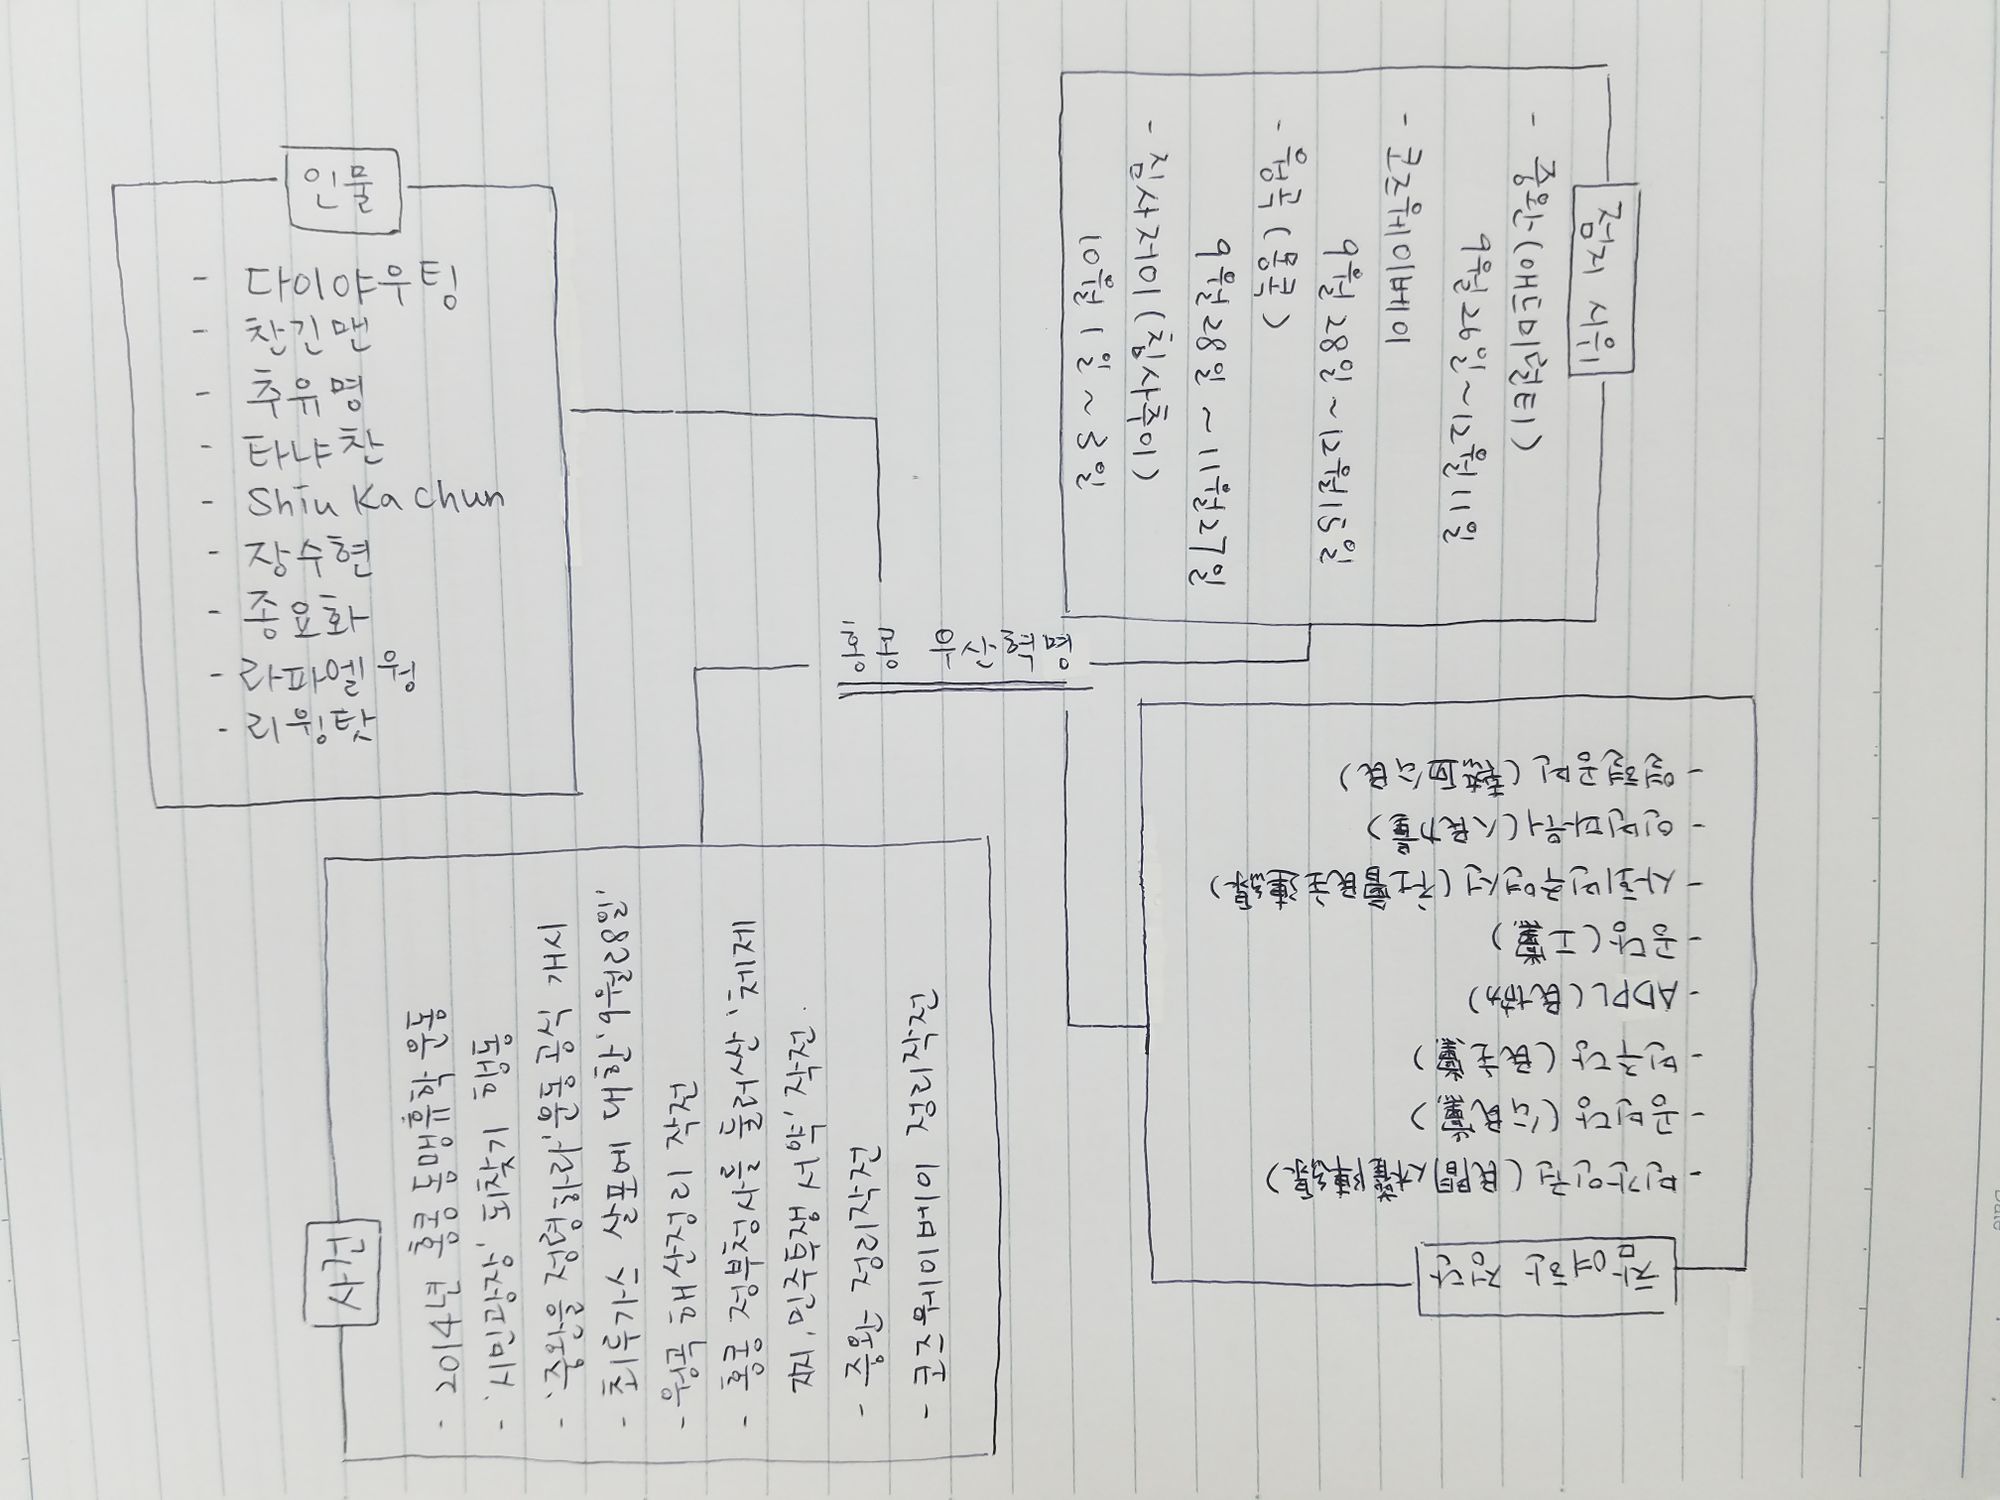 홍콩 우산혁명
인물
- 다이야우팅
- 찬킨맨
- 추유명
- 타냐찬
- Shiu Ka chun
- 장수현
- 종요화
- 라파엘 웡
- 리윙탓
점지 시위
- 중완 (애드미럴티)
9월 26일 ~ 12월 11일
- 코즈웨이베이
9월 28일 ~ 12월 15일
- 웡콕 (몽콕)
9월 28일 ~ 11월 27일
- 침사저이 (침사추이)
10월 1일 ~ 5일
사건
- 2014년 홍콩 동맹휴학 운동
- '시민광장' 되찾기 행동
- '중완을 점령하라' 운동 공식 개시
- 최루가스 살포에 대한 '9월 28일'
- 웡콕 해산정리 작전
- 홍콩 정부청사를 둘러싼 '체제
저지, 민주투쟁 서약' 작전.
- 중완 정리작전
- 코즈웨이베이 정리작전
참여한 정단
- 민간인권 (民間人權陣線)
- 공민당 (公民黨)
- 민주당 (民主黨)
- ADPL (民協)
- 공당 (工黨)
- 사회민주연선 (社會民主連線)
- 인민력량 (人民力量)
- 열혈공민 (熱血公民)